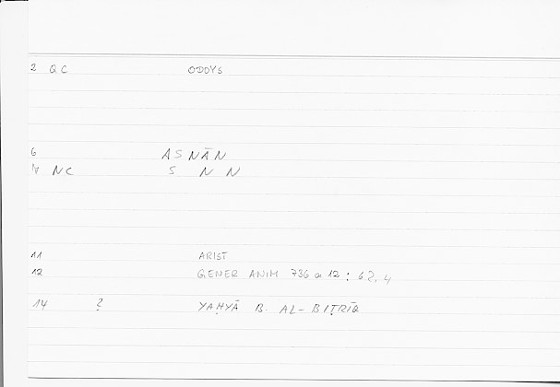 2 QC ODDYS
6 ASNĀN
NC S N N
11 ARIST
12 GENER ANIM 736 a 12 : 62,4
14 ? YAḤYĀ B. AL-BIṬRĪQ